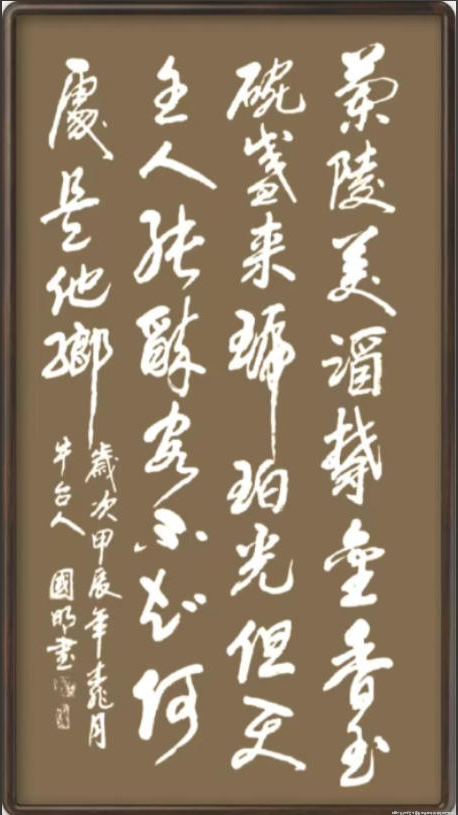 蘭陵美酒欝金香玉
碗盛来琥珀光但使
主人能醉客不知何
處是他鄉
歲次甲辰年桃月
牛台人 國明書